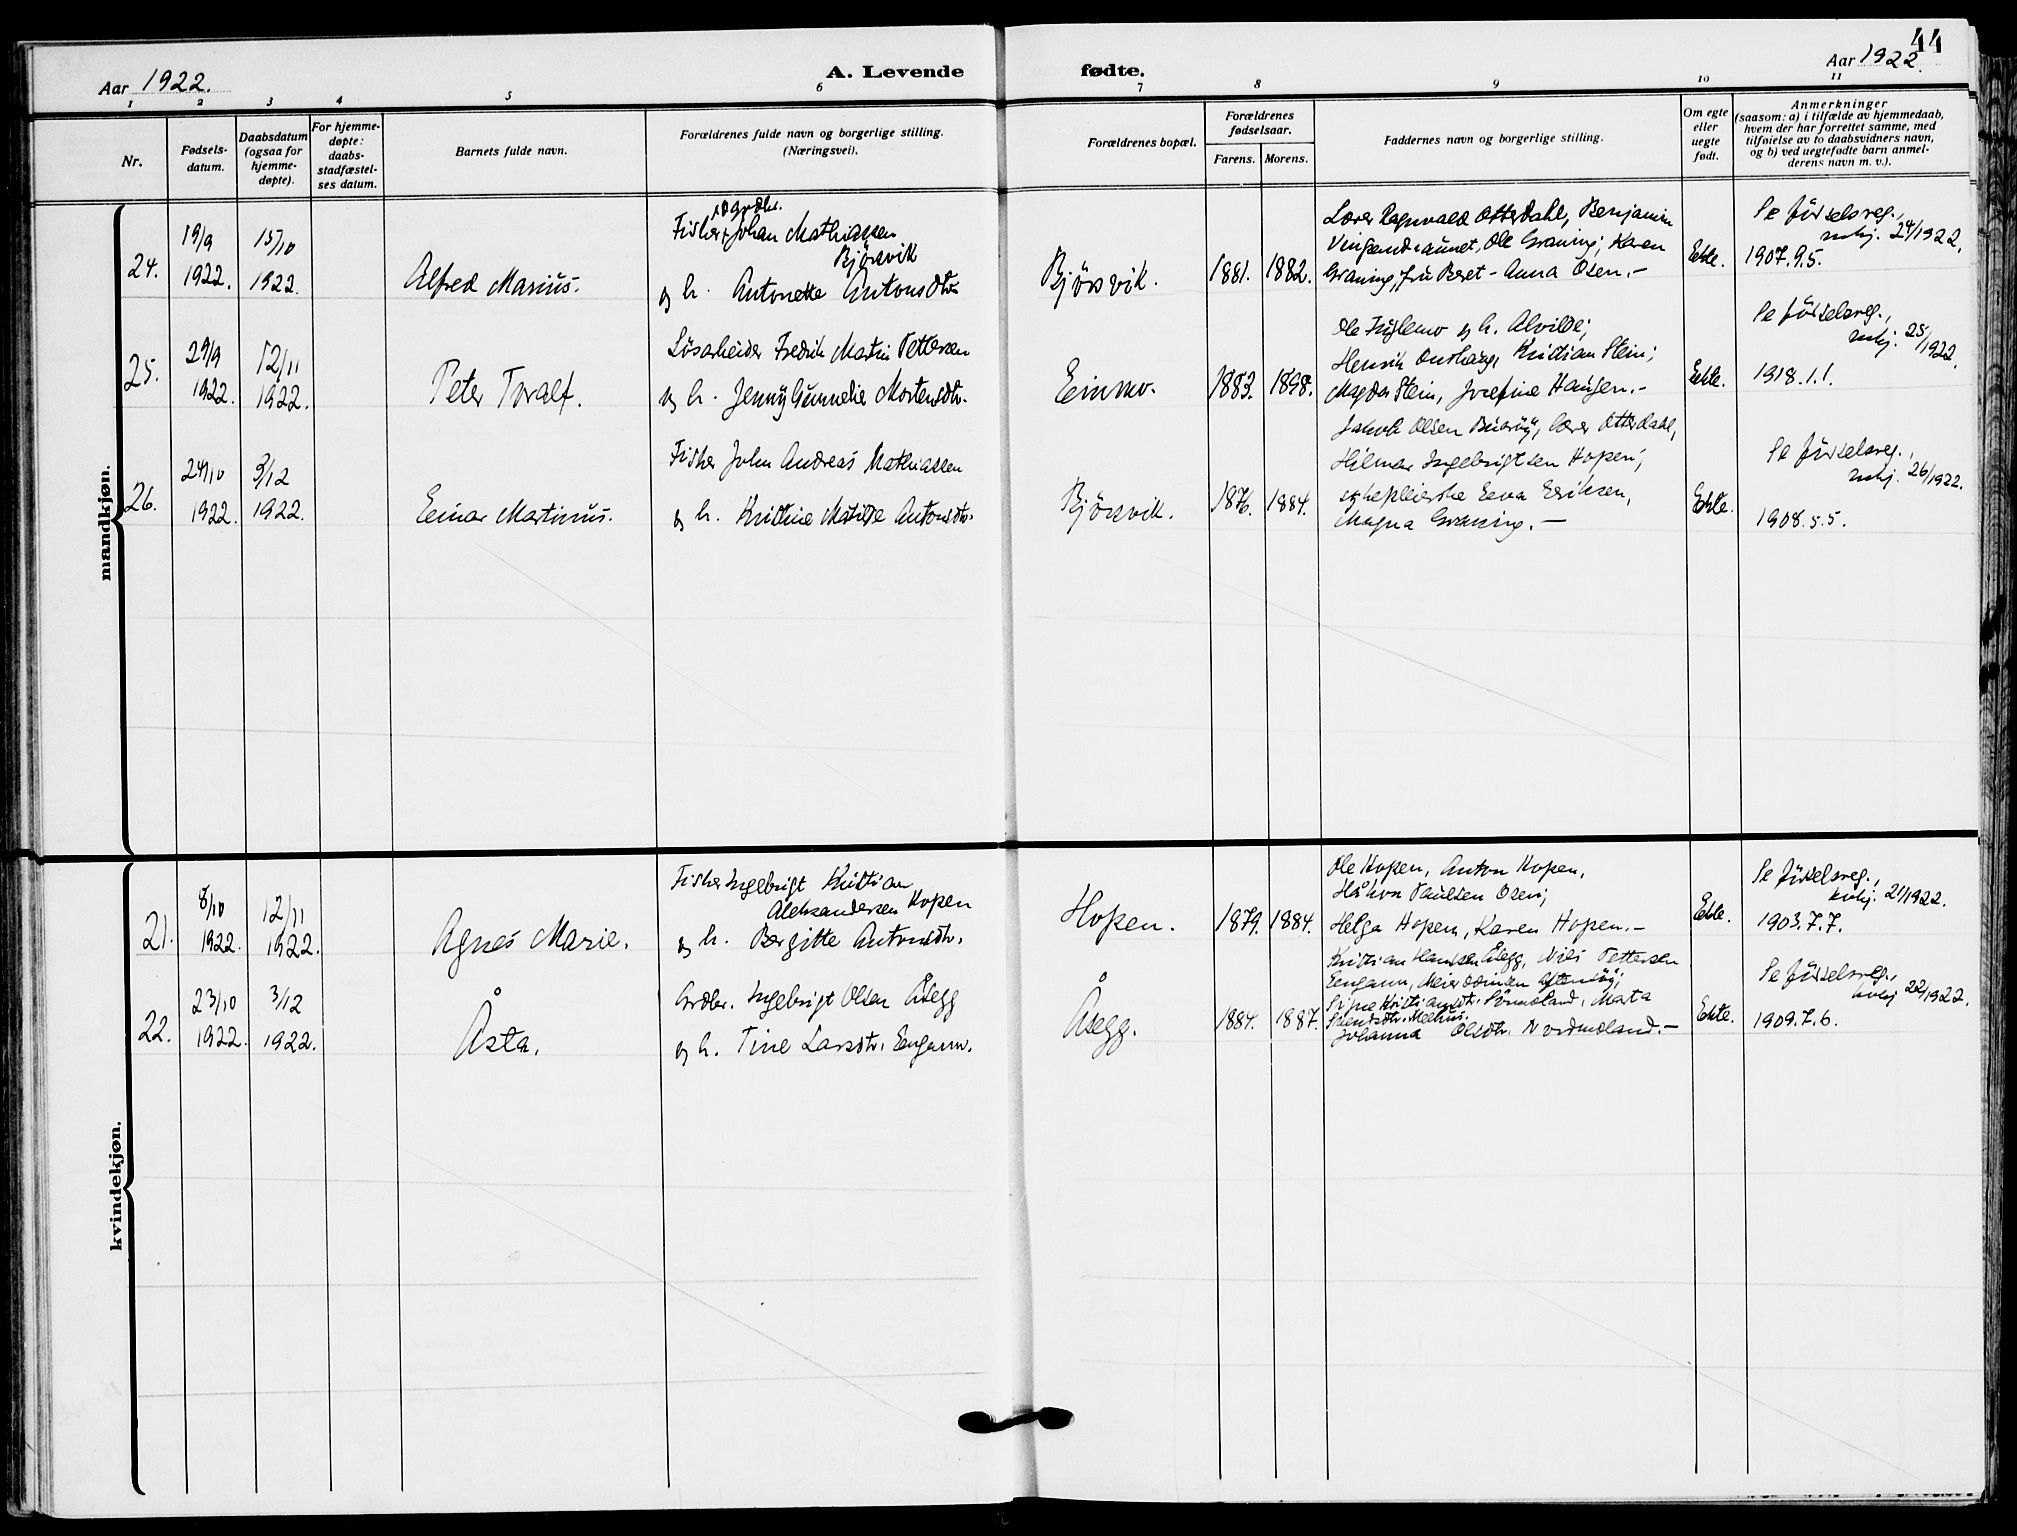 44
Aar 1922.
A. Levende
fødte.
Aar 1922.
1 2 3 4 5 6 7 8 9 10 11
Nr.
Fødsels-
datum.
Daabsdatum
(ogsaa for
hjemme-
døpte).
For hjemme-
døpte:
daabs-
stadfæstel-
ses datum.
Barnets fulde navn.
Forældrenes fulde navn og borgerlige stilling.
(Næringsvei).
Forældrenes bopæl.
Forældrenes
fødselsaar.
Farens. Morens.
Faddernes navn og borgerlige stilling.
Om egte
eller
uegte
født.
Anmerkninger
(saasom: a) i tilfælde av hjemmedaab,
hvem der har forrettet samme, med
tilføielse av to daabsvidners navn,
og b) ved uegtefødte barn anmel-
derens navn m. v.).
mandkjøn.
24.
19/9
1922.
15/10
1922.
Alfred Marius.
Fisker Johan Mathiassen
Bjørsvik
og h. Antonette Antonsdtr
Bjørsvik.
1881. 1882.
Lærer Ragnvald Otterdahl, Benjamin
Vingsandaunet, Ole Graning, Karen
Graning, fru Beret-Anna Osen.-
Ekte.
Se fødselsreg.,
mkj. 24/1922.
1907.9.5.
25.
29/9
1922.
12/11
1922.
Peter Toralf.
Løsarbeider Fredrik Martin Pettersen
og h. Jenny Gunnelie Mortensdtr.
Einmo.
1883. 1898.
Ole Fuglemo og h. Alvilde;
Henrik Kristian Stein;
Magda Stein, Josefine Haugen.-
Ekte.
Se fødselsreg.,
mkj. 25/1922.
1918.1.1.
26.
24/10
1922.
3/12
1922.
Einar Martinus.
Fisker John Andreas Mathiassen
og h. Kristine Matilde Antonsdtr.
Bjørsvik.
1876. 1884.
Jakob Olsen Buarøy, lærer Otterdahl,
Hilmar Ingebrigtsen Hopen;
sykepleierske Eeva Eriksen,
Magna Graning.-
Ekte.
Se fødselsreg.,
mkj. 26/1922.
1908.5.5.
kvindekjøn.
21.
8/10
1922.
12/11
1922.
Agnes Marie.
Fisker Ingebrigt Kristian
Aleksandersen Hopen
og h. Bergitte Antonsdtr.
Hopen.
1879. 1884.
Ole Hopen, Anton Hopen,
Håkon Paulsen Osen;
Helga Hopen, Karen Hopen.-
Ekte.
Se fødselsreg.,
kvkj. 21/1922.
1903.7.7.
22.
23/10
1922.
3/12
1922.
Åsta.
Grdbr. Ingebrigt Olsen Åsegg
og h. Tine Larsdtr. Eengann.
Åsegg.
1884. 1887.
Kristian Hansen Åsegg, Nils Pettersen
Eengann, Meier
Signe Kristiansdtr. Sørmeland, Marta
Meehus.
Johanna Olsdtr. Nordmeland.-
Ekte.
Se fødselsreg.,
kvkj. 22/1922.
1909.7.6.